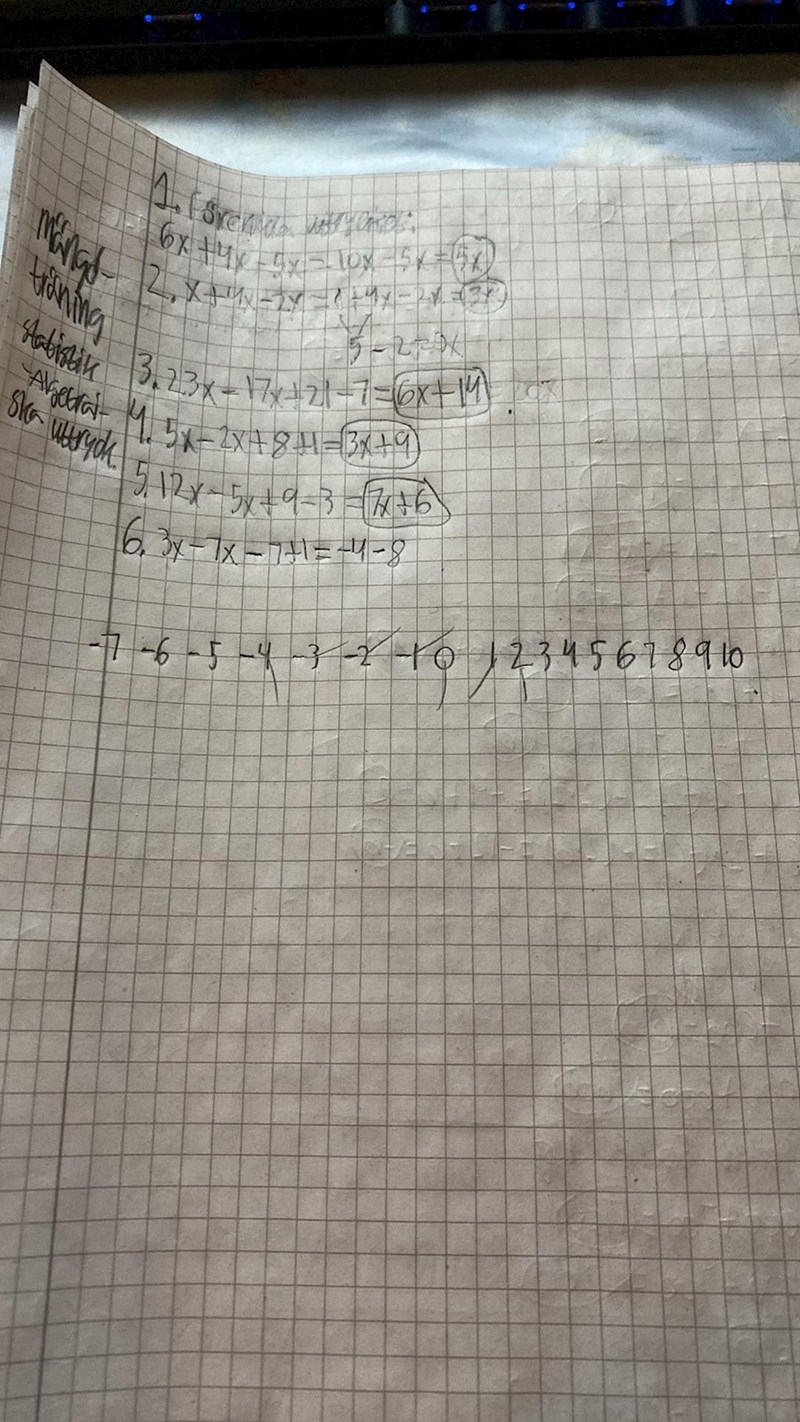 1. Förenkla uttrycket:
6x+4x-5x=10x-5x=5x
2. x+4x-2x=1+4x-2x=3x
5-2=3x
Mängd-
träning
statistik
-Algebrai-
ska uttryck.
3. 23x-17x+21-7=6x+14
4. 5x-2x+8+1=3x+9
5. 12x-5x+9-3=7x+6
6. 3x-7x-7+1=-4-8
-7 -6 -5 -4 -3 -2 -1 0 1 2 3 4 5 6 7 8 9 10